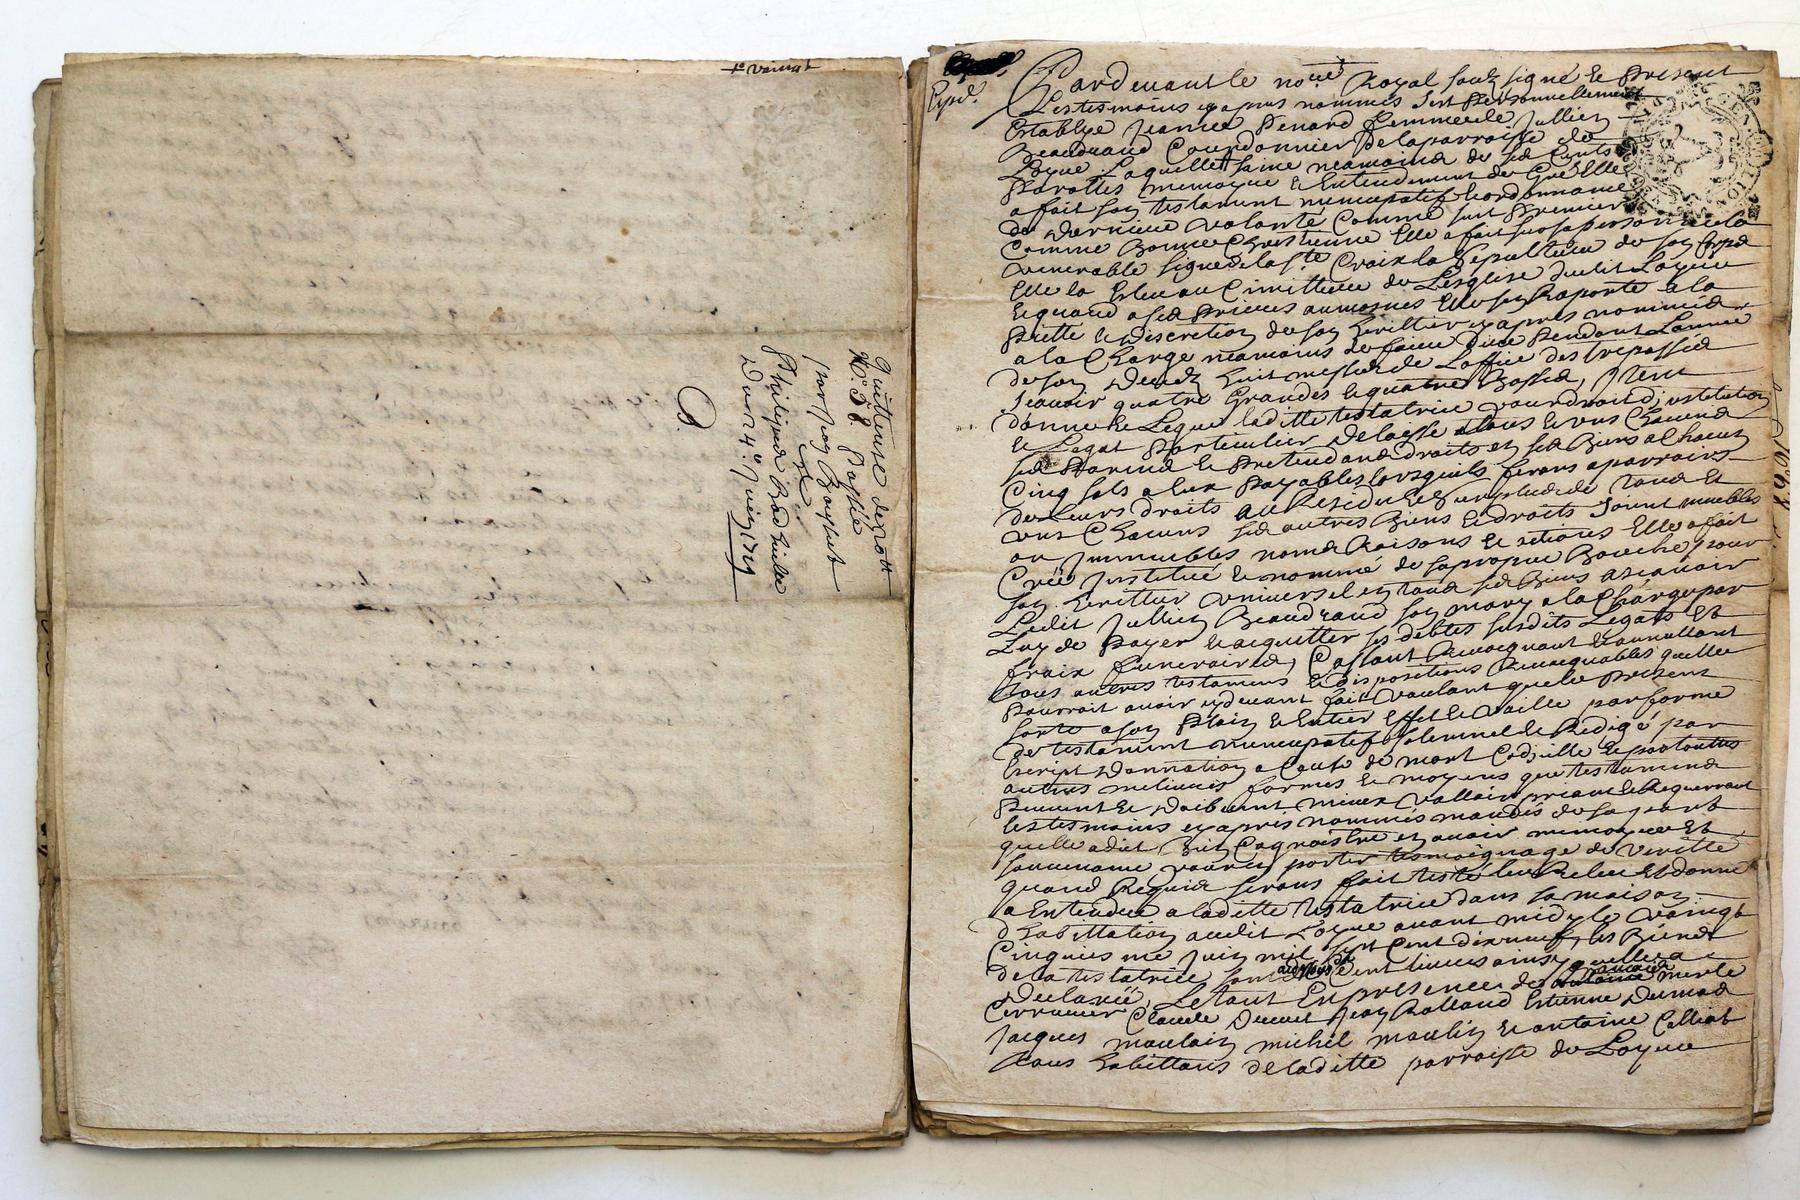 quittance de
N.° 58.
Passée
par
Philippes
Du 24.e Juin 1719
Expd.
Pardevant le no.re Royal soubzsigné & Present
Les tesmoins cyapres nommés s'est Personnellement
Establye Jeanne Penard femme de Jullien
Beaudrand Courdonnier De la parroisse de
Loyue Laquelle saine neamoins de ses Cints
Parolles memoyre & Entendement de Gré Elle
a fait son testament nuncupatif & ordonnance
de Derniere volonté Comme suit Premier
Comme Bonne Chrestienne Elle a fait sur sa personne la
venerable signe de la S.te Croix la sepulture de son Corps
Elle la Esleu au Cimittiere de L'esglise dudit Loyue
& quand a ses Prieres aumosnes Elle sen Raporte a la
Piette & discretion de son herittier cyapres nommé
a la Charge neamoins de faire dire Pendant L'année
de son Decedz huit messes de L'office des trepassés
scavoir quatre Grandes & quatre Basses, Item
donne & Legue laditte testatrice par droit d'institution
& Legat Particulier Delaisse a tous & uns Chacuns
ses Parens & Pretendans droits en ses Biens a Chacun
Cinq sols a Eux Payables lorsquils feront aparroir
de Leurs droits au Residu & Surplus de tous Et
uns Chacuns ses autres Biens & droits soient meubles
ou Immeubles noms Raisons & actions Elle a fait
Créé Institué & nommé de sa propre Bouche pour
son herittier universel en tous ses Biens ascavoir
Ledit Jullien Beaudrand son mary a la Charge par
Luy de Payer & acquitter ses debtes susdits Legats Et
fraix funeraires, Cassant Revocquant & annullant
tous autres testamens & dispositions Revocquables quelle
Pourroit avoir cydevant fait voulant que le present
sorte a son Plain & Entier Effet & vaille par forme
de testament nuncupatif solemnel & Redigé par
Escript Donnation a Cause de mort Codicille & par toutes
autres meilieures formes & moyens que testamens
Peuvent & Doibvent mieux vallair priant & Requerrant
les tesmoins cyapres nommés mandés de sa part
quelle a dit Bien Cognoistre en avoir memoyre Et
souvenance pour en porter tesmoignage de verité
quand Requis seront fait testé leu Releu Et donné
a Entendre a laditte testatrice dans sa maison
d'habittation audit Loyue avant midy le vaingt
Cinquiesme Juin mil sept Cent dixneuf, les Biens
de la testatrice sont Cent livres ainsy quelle a
Declarée, Le tout En presence de merle
Claude Jean Rolland Estienne Dumas
Jacques moulain michel moulin & antoine Colliat
tous habittans de laditte parroisse de Loyue